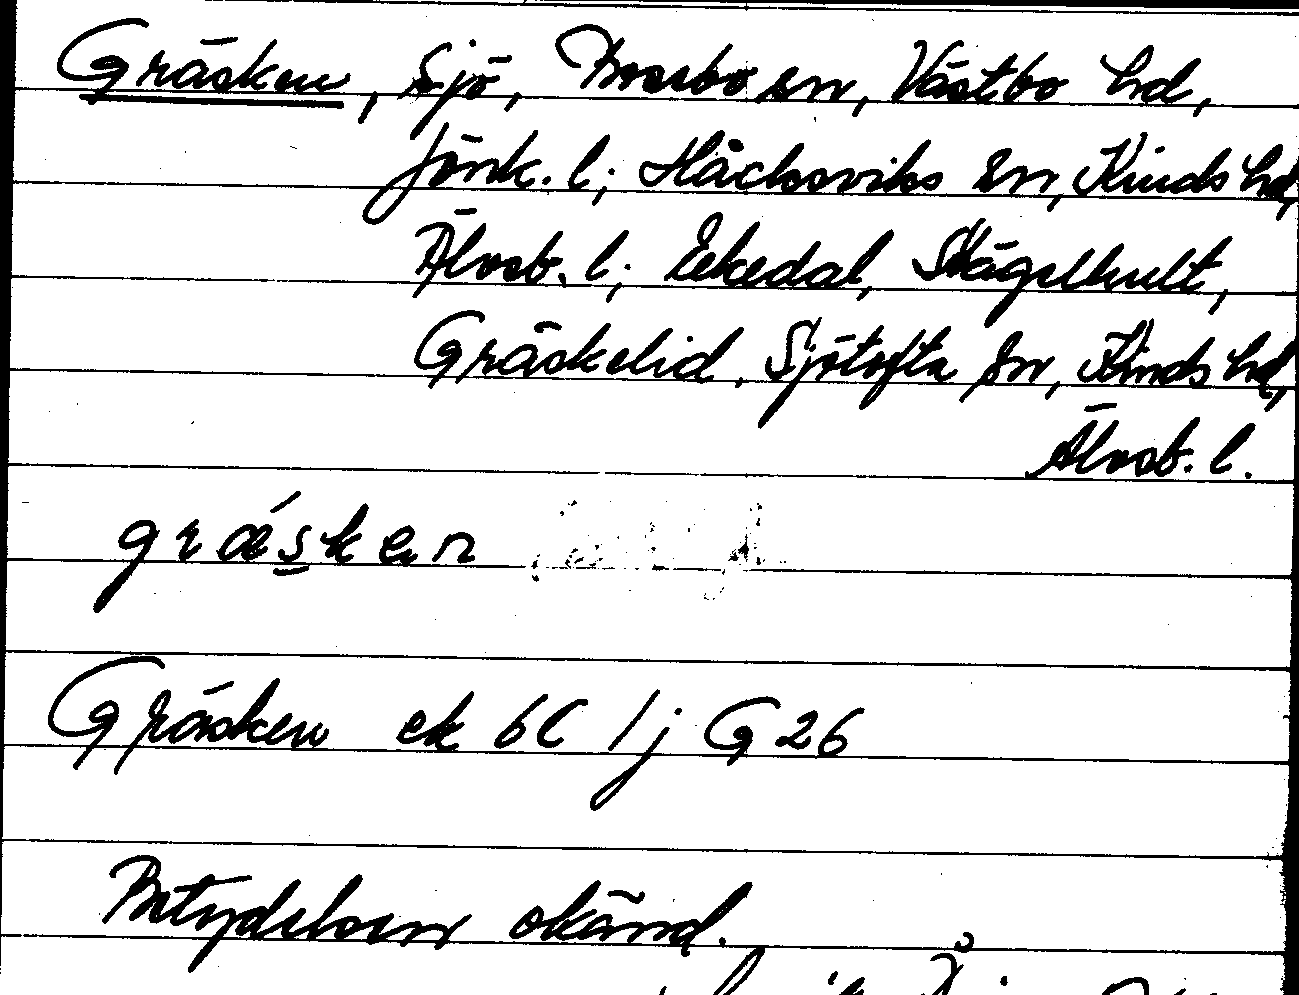 Gräsken, Sjö, Bosebo sn, Västbo hd,
Jönk. l; Håcksviks sn, Kinds hd,
Älvsb. l; Ekedal, Skägelhult,
Gräskelid, Sjötofta sn, Kinds hd,
Älvsb. l.
gräsken
Gräsken ek 6C 1j G 26
Betydelsen okänd.